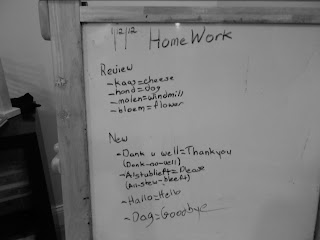 4/12/12 HomeWork
Review
-kaas=cheese
-hond=dog
-molen=windmill
-bloem=flower
New
-Dank u well=Thankyou
(Dank-oo-well)
-Alstublieft=Please
-Hallo=Hello
-Dag=Goodbye